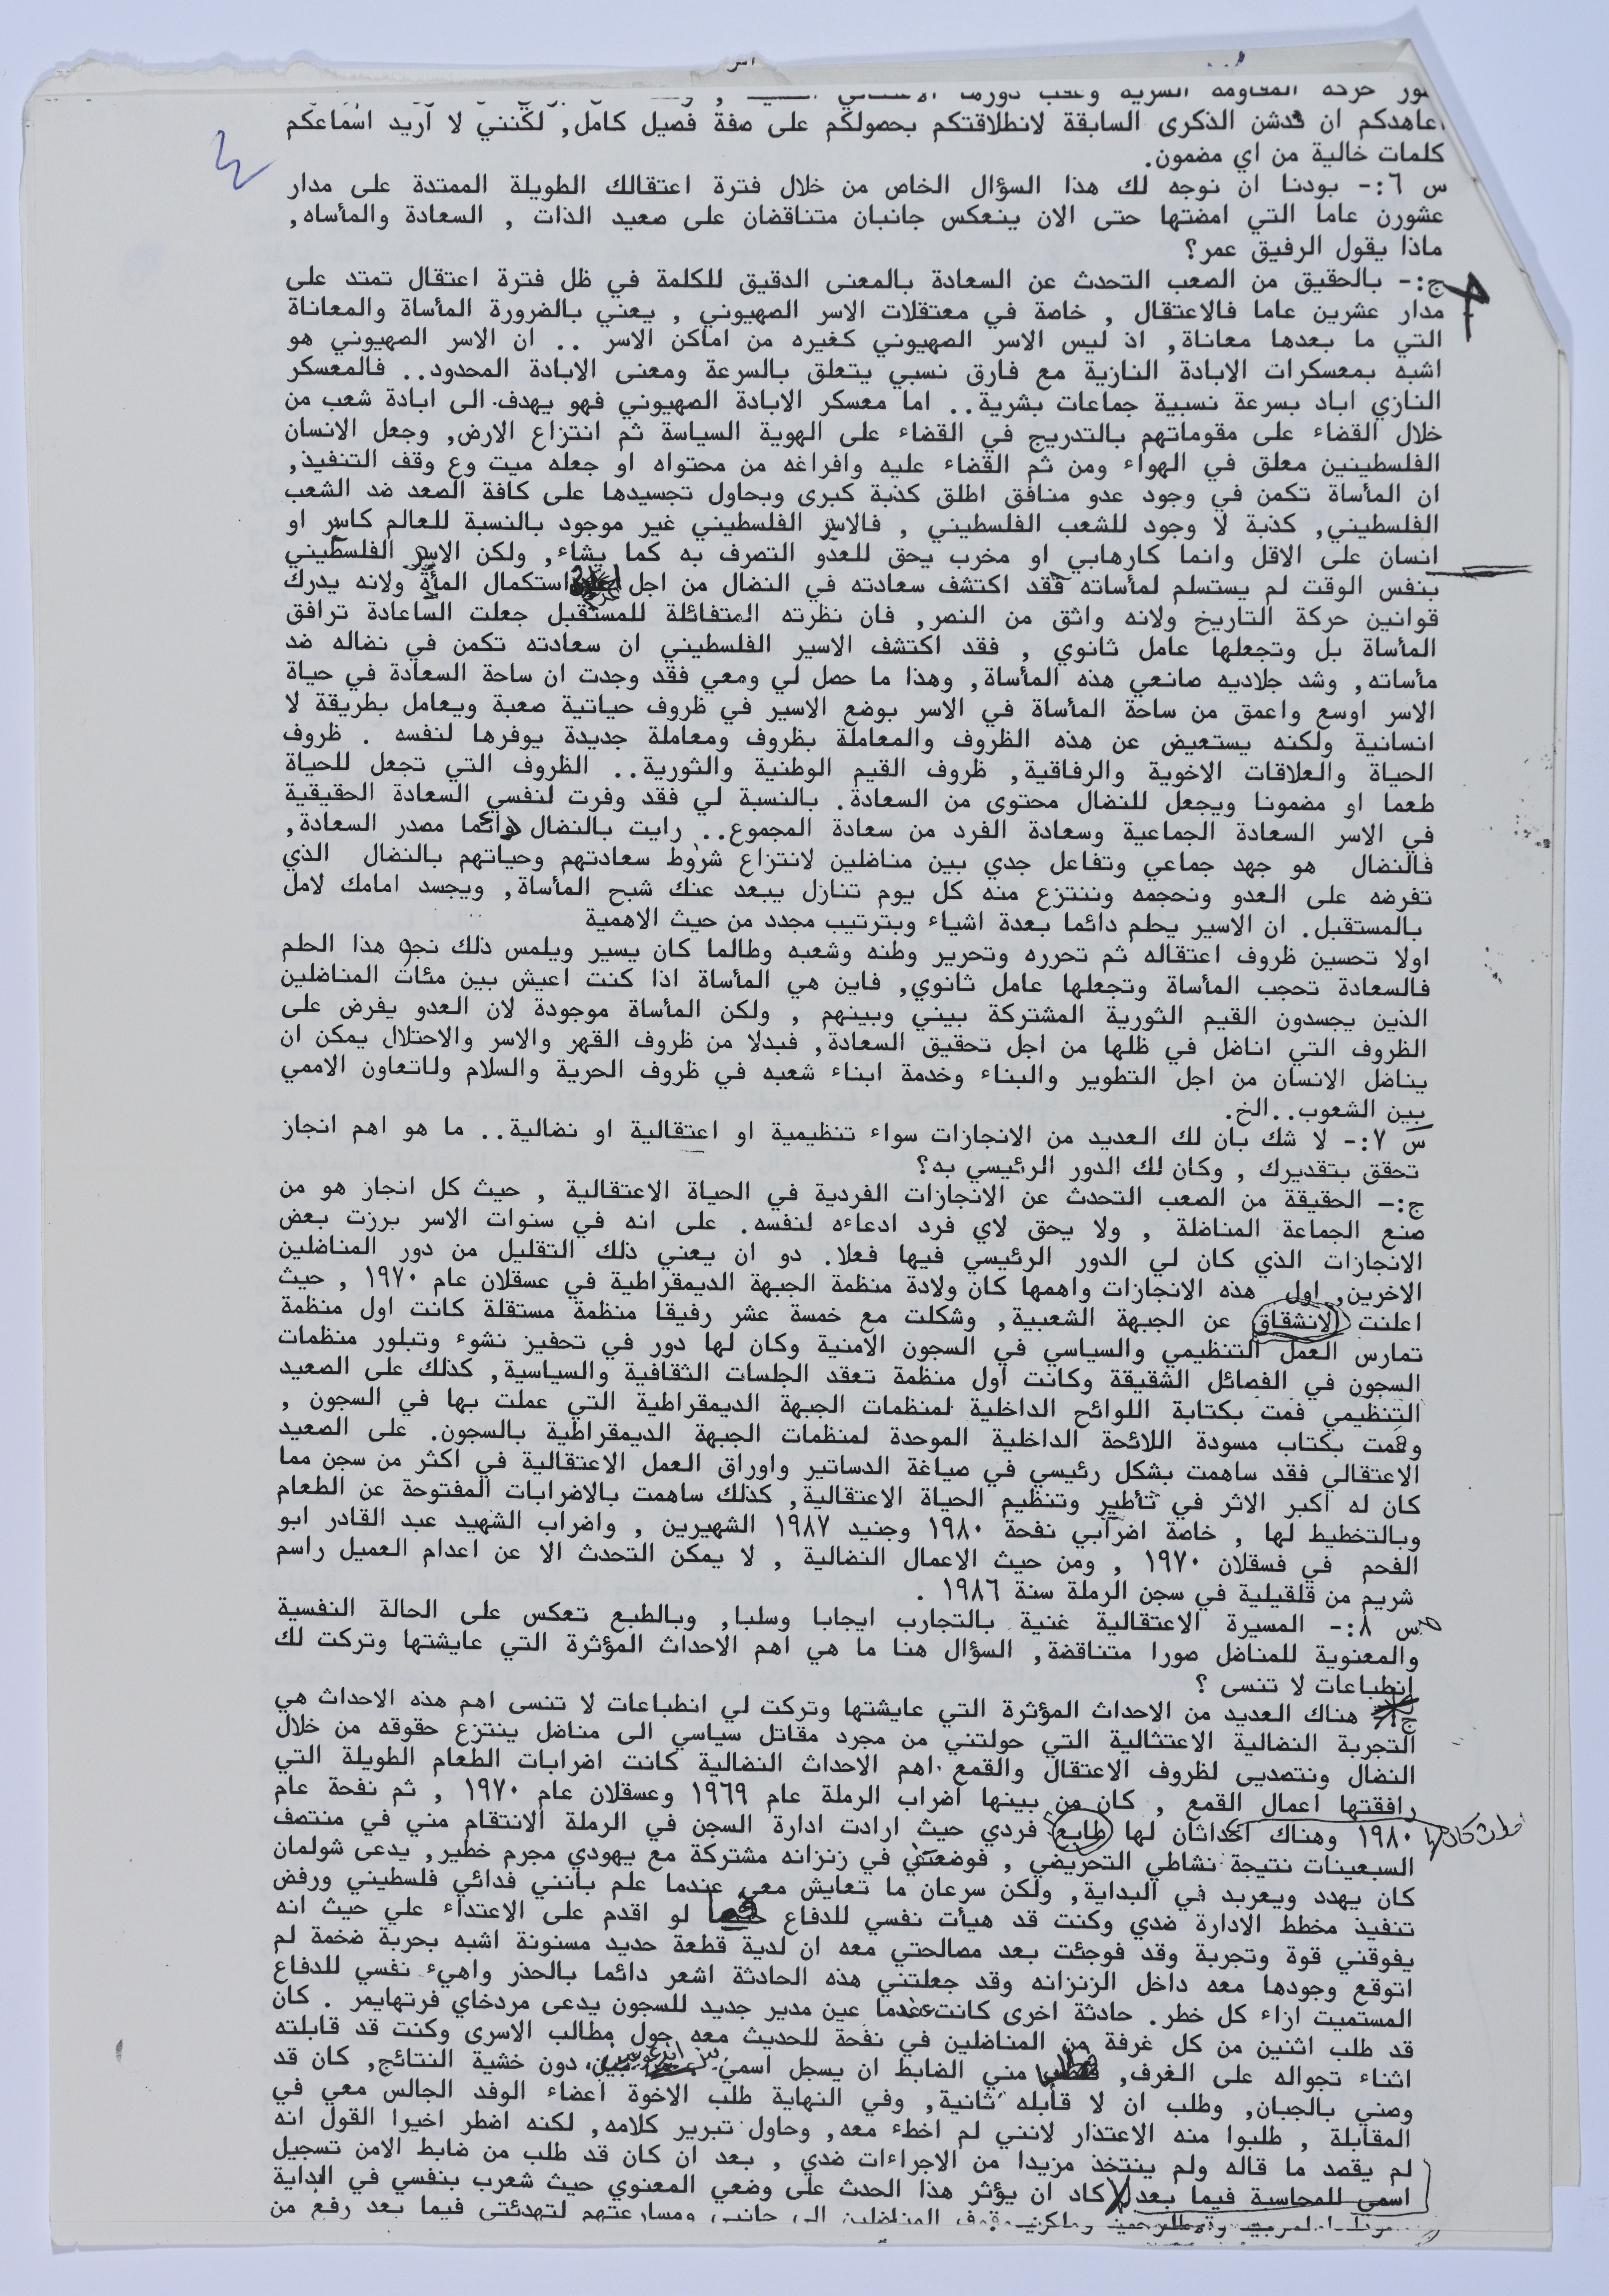 اعاهدكم ان ندشن الذكرى السابقة لانطلاقتكم بحصولكم على صفة فصيل كامل, لكنني لا اريد اسماعكم
كلمات خالية من اي مضمون.
س ٦:- بودنا ان نوجه لك هذا السؤال الخاص من خلال فترة اعتقالك الطويلة الممتدة على مدار
عشورن عاما التي امضتها حتى الان ينعكس جانبان متناقضان على صعيد الذات , السعادة والمأساه,
ماذا يقول الرفيق عمر؟
ج:- بالحقيق من الصعب التحدث عن السعادة بالمعنى الدقيق للكلمة في ظل فترة اعتقال تمتد على
مدار عشرين عاما فالاعتقال , خاصة في معتقلات الاسر الصهيوني , يعني بالضرورة المأساة والمعاناة
التي ما بعدها معاناة, اذ ليس الاسر الصهيوني كغيره من اماكن الاسر .. ان الاسر الصهيوني هو
اشبه بمعسكرات الابادة النازية مع فارق نسبي يتعلق بالسرعة ومعنى الابادة المحدود.. فالمعسكر
النازي اباد بسرعة نسبية جماعات بشرية.. اما معسكر الابادة الصهيوني فهو يهدف الى ابادة شعب من
خلال القضاء على مقوماتهم بالتدريج في القضاء على الهوية السياسة ثم انتزاع الارض, وجعل الانسان
الفلسطينين معلق في الهواء ومن ثم القضاء عليه وافراغه من محتواه او جعله ميت وع وقف التنفيذ,
ان المأساة تكمن في وجود عدو منافق اطلق كذبة كبرى وبحاول تجسيدها على كافة الصعد ضد الشعب
الفلسطيني, كذبة لا وجود للشعب الفلسطيني , فالاسير الفلسطيني غير موجود بالنسبة للعالم كاسير او
انسان على الاقل وانما كارهابي او مخرب يحق للعدو التصرف به كما يشاء, ولكن الاسير الفلسطيني
بنفس الوقت لم يستسلم لمأساته فقد اكتشف سعادته في النضال من اجل استكمال المأة ولانه يدرك
قوانين حركة التاريخ ولانه واثق من النصر, فان نظرته المتفائلة للمستقبل جعلت الساعادة ترافق
المأساة بل وتجعلها عامل ثانوي , فقد اكتشف الاسير الفلسطيني ان سعادته تكمن في نضاله ضد
مأساته, وشد جلاديه صانعي هذه المأساة, وهذا ما حصل لي ومعي فقد وجدت ان ساحة السعادة في حياة
الاسر اوسع واعمق من ساحة المأساة في الاسر بوضع الاسير في ظروف حياتية صعبة ويعامل بطريقة لا
انسانية ولكنه يستعيض عن هذه الظروف والمعاملة بظروف ومعاملة جديدة يوفرها لنفسه . ظروف
الحياة والعلاقات الاخوية والرفاقية, ظروف القيم الوطنية والثورية.. الظروف التي تجعل للحياة
طعما او مضمونا ويجعل للنضال محتوى من السعادة. بالنسبة لي فقد وفرت لنفسي السعادة الحقيقية
في الاسر السعادة الجماعية وسعادة الفرد من سعادة المجموع.. رايت بالنضال دائما مصدر السعادة,
فالنضال هو جهد جماعي وتفاعل جدي بين مناضلين لانتزاع شروط سعادتهم وحياتهم بالنضال الذي
تفرضه على العدو ونحجمه وننتزع منه كل يوم تنازل يبعد عنك شبح المأساة, ويجسد امامك لامل
بالمستقبل. ان الاسير يحلم دائما بعدة اشياء وبترتيب مجدد من حيث الاهمية
اولا تحسين ظروف اعتقاله ثم تحرره وتحرير وطنه وشعبه وطالما كان يسير ويلمس ذلك نجو هذا الحلم
فالسعادة تحجب المأساة وتجعلها عامل ثانوي, فاين هي المأساة اذا كنت اعيش بين مئات المناضلين
الذين يجسدون القيم الثورية المشتركة بيني وبينهم , ولكن المأساة موجودة لان العدو يفرض على
الظروف التي اناضل في ظلها من اجل تحقيق السعادة, فبدلا من ظروف القهر والاسر والاحتلال يمكن ان
يناضل الانسان من اجل التطوير والبناء وخدمة ابناء شعبه في ظروف الحرية والسلام ولاتعاون الاممي
بين الشعوب..الخ.
س ٧:- لا شك بان لك العديد من الانجازات سواء تنظيمية او اعتقالية او نضالية.. ما هو اهم انجاز
تحقق بتقديرك , وكان لك الدور الرئيسي به؟
ج:- الحقيقة من الصعب التحدث عن الانجازات الفردية في الحياة الاعتقالية , حيث كل انجاز هو من
صنع الجماعة المناضلة , ولا يحق لاي فرد ادعاءه لنفسه. على انه في سنوات الاسر برزت بعض
الانجازات الذي كان لي الدور الرئيسي فيها فعلا. دو ان يعني ذلك التقليل من دور المناضلين
الاخرين, اول هذه الانجازات واهمها كان ولادة منظمة الجبهة الديمقراطية في عسقلان عام ١٩٧٠ , حيث
اعلنت الانشقاق عن الجبهة الشعبية, وشكلت مع خمسة عشر رفيقا منظمة مستقلة كانت اول منظمة
تمارس العمل التنظيمي والسياسي في السجون الامنية وكان لها دور في تحفيز نشوء وتبلور منظمات
السجون في الفصائل الشقيقة وكانت اول منظمة تعقد الجلسات الثقافية والسياسية, كذلك على الصعيد
التنظيمي فمت بكتابة اللوائح الداخلية لمنظمات الجبهة الديمقراطية التي عملت بها في السجون ,
وقمت بكتاب مسودة اللائحة الداخلية الموحدة لمنظمات الجبهة الديمقراطية بالسجون. على الصعيد
الاعتقالي فقد ساهمت بشكل رئيسي في صياغة الدساتير واوراق العمل الاعتقالية في اكثر من سجن مما
كان له اكبر الاثر في تأطير وتنظيم الحياة الاعتقالية, كذلك ساهمت بالاضرابات المفتوحة عن الطعام
وبالتخطيط لها , خاصة اضرابي نفحة ١٩٨٠ وجنيد ١٩٨٧ الشهيرين , واضراب الشهيد عبد القادر ابو
الفحم في فسقلان ١٩٧٠ , ومن حيث الاعمال النضالية , لا يمكن التحدث الا عن اعدام العميل راسم
شريم من قلقيلية في سجن الرملة سنة ١٩٨٦ .
س ٨:- المسيرة الاعتقالية غنية بالتجارب ايجابا وسلبا, وبالطبع تعكس على الحالة النفسية
والمعنوية للمناضل صورا متناقضة, السؤال هنا ما هي اهم الاحداث المؤثرة التي عايشتها وتركت لك
انطباعات لا تنسى ؟
ج: هناك العديد من الاحداث المؤثرة التي عايشتها وتركت لي انطباعات لا تنسى اهم هذه الاحداث هي
التجربة النضالية الاعتثالية التي حولتني من مجرد مقاتل سياسي الى مناضل ينتزع حقوقه من خلال
النضال ونتصديى لظروف الاعتقال والقمع .اهم الاحداث النضالية كانت اضرابات الطعام الطويلة التي
رافقتها اعمال القمع , كان من بينها اضراب الرملة عام ١٩٦٩ وعسقلان عام ١٩٧٠ , ثم نفحة عام
١٩٨٠ وهناك احداثان لها طابع فردي حيث ارادت ادارة السجن في الرملة الانتقام مني في منتصف
السبعينات نتيجة نشاطي التحريضي , فوضعتني في زنزانه مشتركة مع يهودي مجرم خطير, يدعى شولمان
كان يهدد ويعربد في البداية, ولكن سرعان ما تعايش معي عندما علم بانني فدائي فلسطيني ورفض
تنفيذ مخطط الادارة ضدي وكنت قد هيأت نفسي للدفاع لو اقدم على الاعتداء علي حيث انه
يفوقني قوة وتجربة وقد فوجئت بعد مصالحتي معه ان لدية قطعة حديد مسنونة اشبه بحربة ضخمة لم
اتوقع وجودها معه داخل الزنزانه وقد جعلتني هذه الحادثة اشعر دائما بالحذر واهيء نفسي للدفاع
المستميت ازاء كل خطر. حادثة اخرى كانت عندما عين مدير جديد للسجون يدعى مردخاي فرتهايمر . كان
قد طلب اثنين من كل غرفة من المناضلين في نفحة للحديث معه حول مطالب الاسرى وكنت قد قابلته
اثناء تجواله على الغرف, مني الضابط ان يسجل اسمي دون خشية النتائج, كان قد
وصني بالجبان, وطلب ان لا قابله ثانية, وفي النهاية طلب الاخوة اعضاء الوفد الجالس معي في
المقابلة , طلبوا منه الاعتذار لانني لم اخطء معه, وحاول تبرير كلامه, لكنه اضطر اخيرا القول انه
لم يقصد ما قاله ولم ينتخذ مزيدا من الاجراءات ضدي , بعد ان كان قد طلب من ضابط الامن تسجيل
اسمي للمحاسبة فيما بعد كاد ان يؤثر هذا الحدث على وضعي المعنوي حيث شعرب بنفسي في البداية
المناضلين الى جانبي ومسارعتهم لتهدئتي فيما بعد رفع من